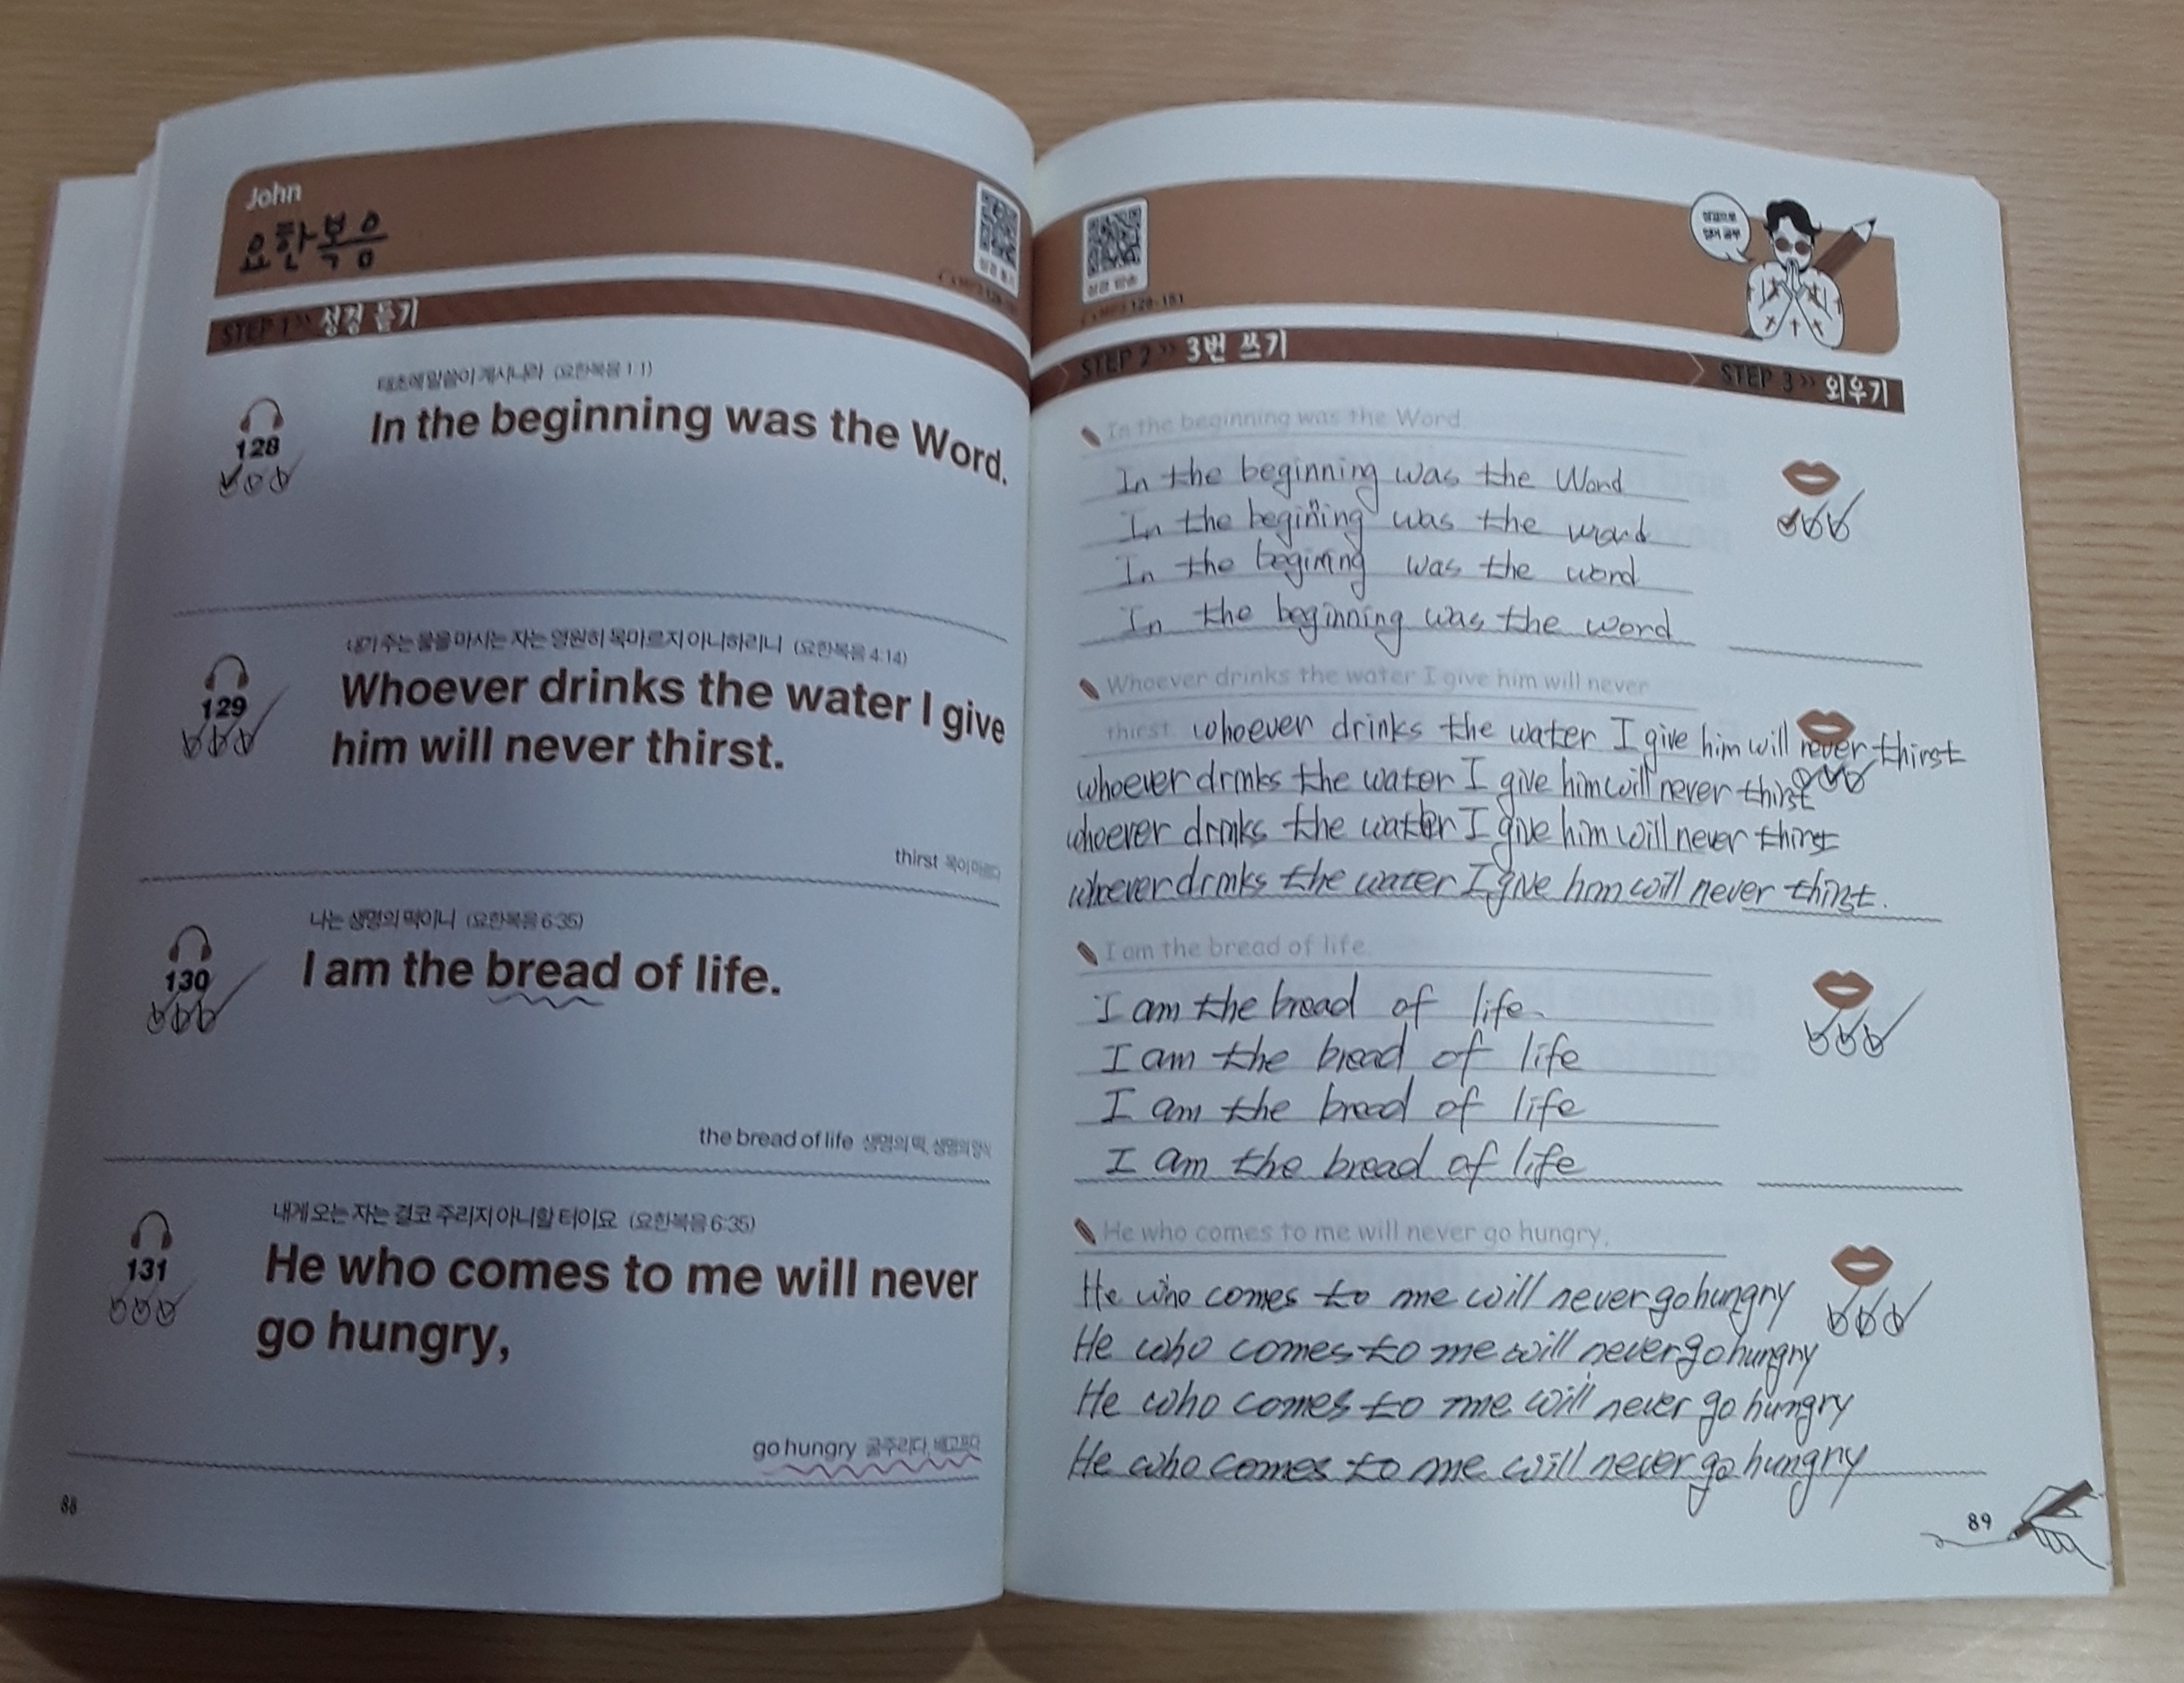 John
요한복음
STEP 1 >> 성경 듣기
태초에 말씀이 계시니라 (요한복음 1:1)
128
In the beginning was the Word.
내가 주는 물을 마시는 자는 영원히 목마르지 아니하리니 (요한복음 4:14)
129
Whoever drinks the water I give
him will never thirst.
thirst 목이 마르다
나는 생명의 떡이니 (요한복음 6:35)
130
I am the bread of life.
the bread of life 생명의 떡, 생명의 양식
내게 오는 자는 결코 주리지 아니할 터이요 (요한복음 6:35)
131
He who comes to me will never
go hungry,
go hungry 굶주리다, 배고프다
88
성경으로
영어 공부
128-131
STEP 2 >> 3번 쓰기
STEP 3 >> 외우기
In the beginning was the Word.
In the beginning was the Word
In the begining was the word
In the begining was the word
In the beginning was the word
Whoever drinks the water I give him will never
thirst. whoever drinks the water I give him will never thirst
whoever drinks the water I give him will never thirst
whoever drinks the water I give him will never thirst
whoever drinks the water I give him will never thirst.
I am the bread of life.
I am the bread of life.
I am the bread of life
I am the bread of life
I am the bread of life
He who comes to me will never go hungry,
He who comes to me will never go hungry
He who comes to me will never go hungry
He who comes to me will never go hungry
He who comes to me will never go hungry
89